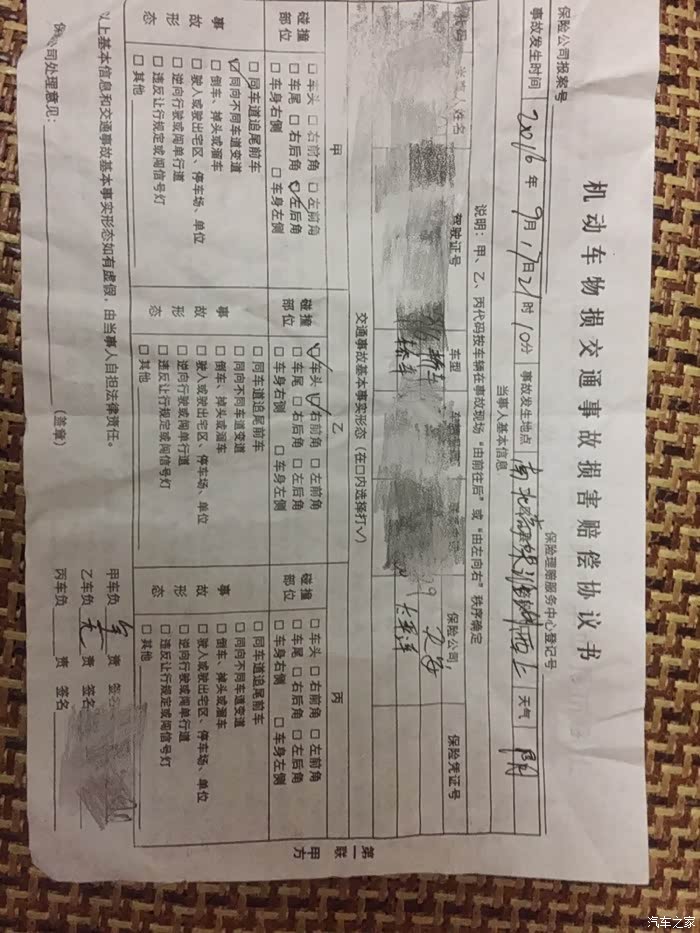 机动车物损交通事故损害赔偿协议书
保险公司报案号 保险理赔服务中心登记号
事故发生时间 2016年9月17日21时10分 事故发生地点 天气 阴
当事人基本信息
说明：甲、乙、丙代码按车辆在事故现场“由前往后”或“由左向右”秩序确定
驾驶证号 车型 保险公司 保险凭证号
轿车
轿车 太平洋
交通事故基本事实形态（在□内选择打√）
甲 乙 丙
碰撞部位 □车头 □右前角 □左前角
□车尾 □右后角 ☑左后角
□车身右侧 □车身左侧
事故形态 □同车道追尾前车
☑同向不同车道变道
□倒车、掉头或溜车
□驶入或驶出宅区、停车场、单位
□逆向行驶或闯单行道
□违反让行规定或闯信号灯
□其他
碰撞部位 ☑车头 ☑右前角 □左前角
□车尾 □右后角 □左后角
□车身右侧 □车身左侧
事故形态 □同车道追尾前车
□同向不同车道变道
□倒车、掉头或溜车
□驶入或驶出宅区、停车场、单位
□逆向行驶或闯单行道
□违反让行规定或闯信号灯
□其他
碰撞部位 □车头 □右前角 □左前角
□车尾 □右后角 □左后角
□车身右侧 □车身左侧
事故形态 □同车道追尾前车
□同向不同车道变道
□倒车、掉头或溜车
□驶入或驶出宅区、停车场、单位
□逆向行驶或闯单行道
□违反让行规定或闯信号灯
□其他
以上基本信息和交通事故基本事实形态如有虚假，由当事人自担法律责任。
甲车负 全 责 签名
乙车负 无 责 签名
丙车负 责 签名
保 公司处理意见： （盖章）
第一联 甲方
汽车之家